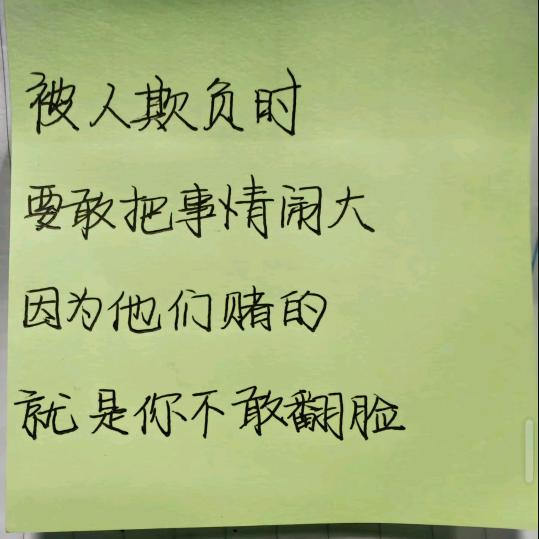 被人欺负时
要敢把事情闹大
因为他们赌的
就是你不敢翻脸